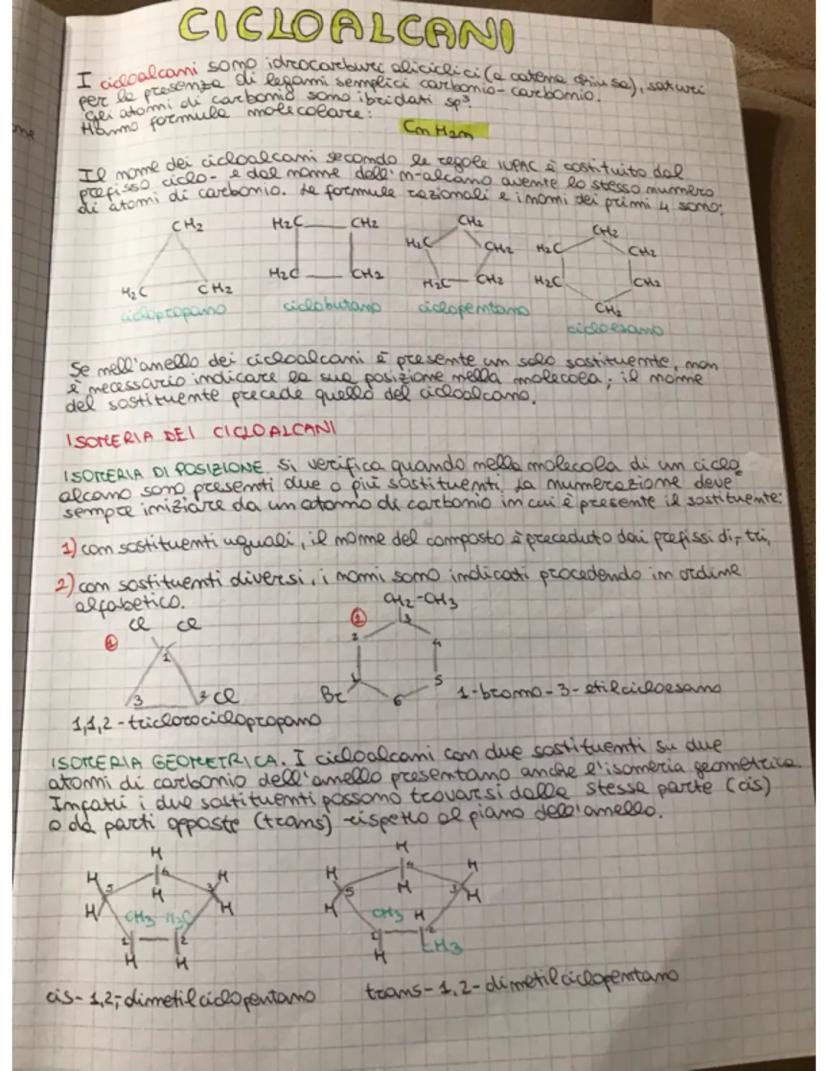 CICLOALCANI
I cicloalcani sono idrocarburi aliciclici (a catena chiusa), saturi
per la presenza di legami semplici carbonio-carbonio.
Gli atomi di carbonio sono ibridati sp³.
Hanno formula molecolare:
CnH2n
Il nome dei cicloalcani secondo le regole IUPAC è costituito dal
prefisso ciclo- e dal nome dell'n-alcano avente lo stesso numero
di atomi di carbonio. Le formule razionali e i nomi dei primi 4 sono:
CH2 H2C CH2 CH2 CH2
H2C CH2 H2C CH2
H2C CH2 H2C CH2 H2C CH2 H2C CH2
CH2
ciclopropano ciclobutano ciclopentano cicloesano
Se nell'anello dei cicloalcani è presente un solo sostituente, non
è necessario indicare la sua posizione nella molecola; il nome
del sostituente precede quello del cicloalcano.
ISOMERIA DEI CICLOALCANI
ISOMERIA DI POSIZIONE. Si verifica quando nella molecola di un ciclo
alcano sono presenti due o più sostituenti. La numerazione deve
sempre iniziare da un atomo di carbonio in cui è presente il sostituente:
1) con sostituenti uguali, il nome del composto è preceduto dai prefissi di-, tri,
2) con sostituenti diversi, i nomi sono indicati procedendo in ordine
alfabetico.
Cl Cl CH2-CH3
1 2 3 4
3 2 Cl Br 1 6 5 1-bromo-3-etilcicloesano
1,1,2-triclorociclopropano
ISOMERIA GEOMETRICA. I cicloalcani con due sostituenti su due
atomi di carbonio dell'anello presentano anche l'isomeria geometrica.
Infatti i due sostituenti possono trovarsi dalla stessa parte (cis)
o da parti opposte (trans) rispetto al piano dell'anello.
H H
H 5 4 3 H H 5 4 3 H
H H H H H H
CH3 H3C CH3 H
1 2 1 2
H H H CH3
cis-1,2,-dimetilciclopentano trans-1,2-dimetilciclopentano